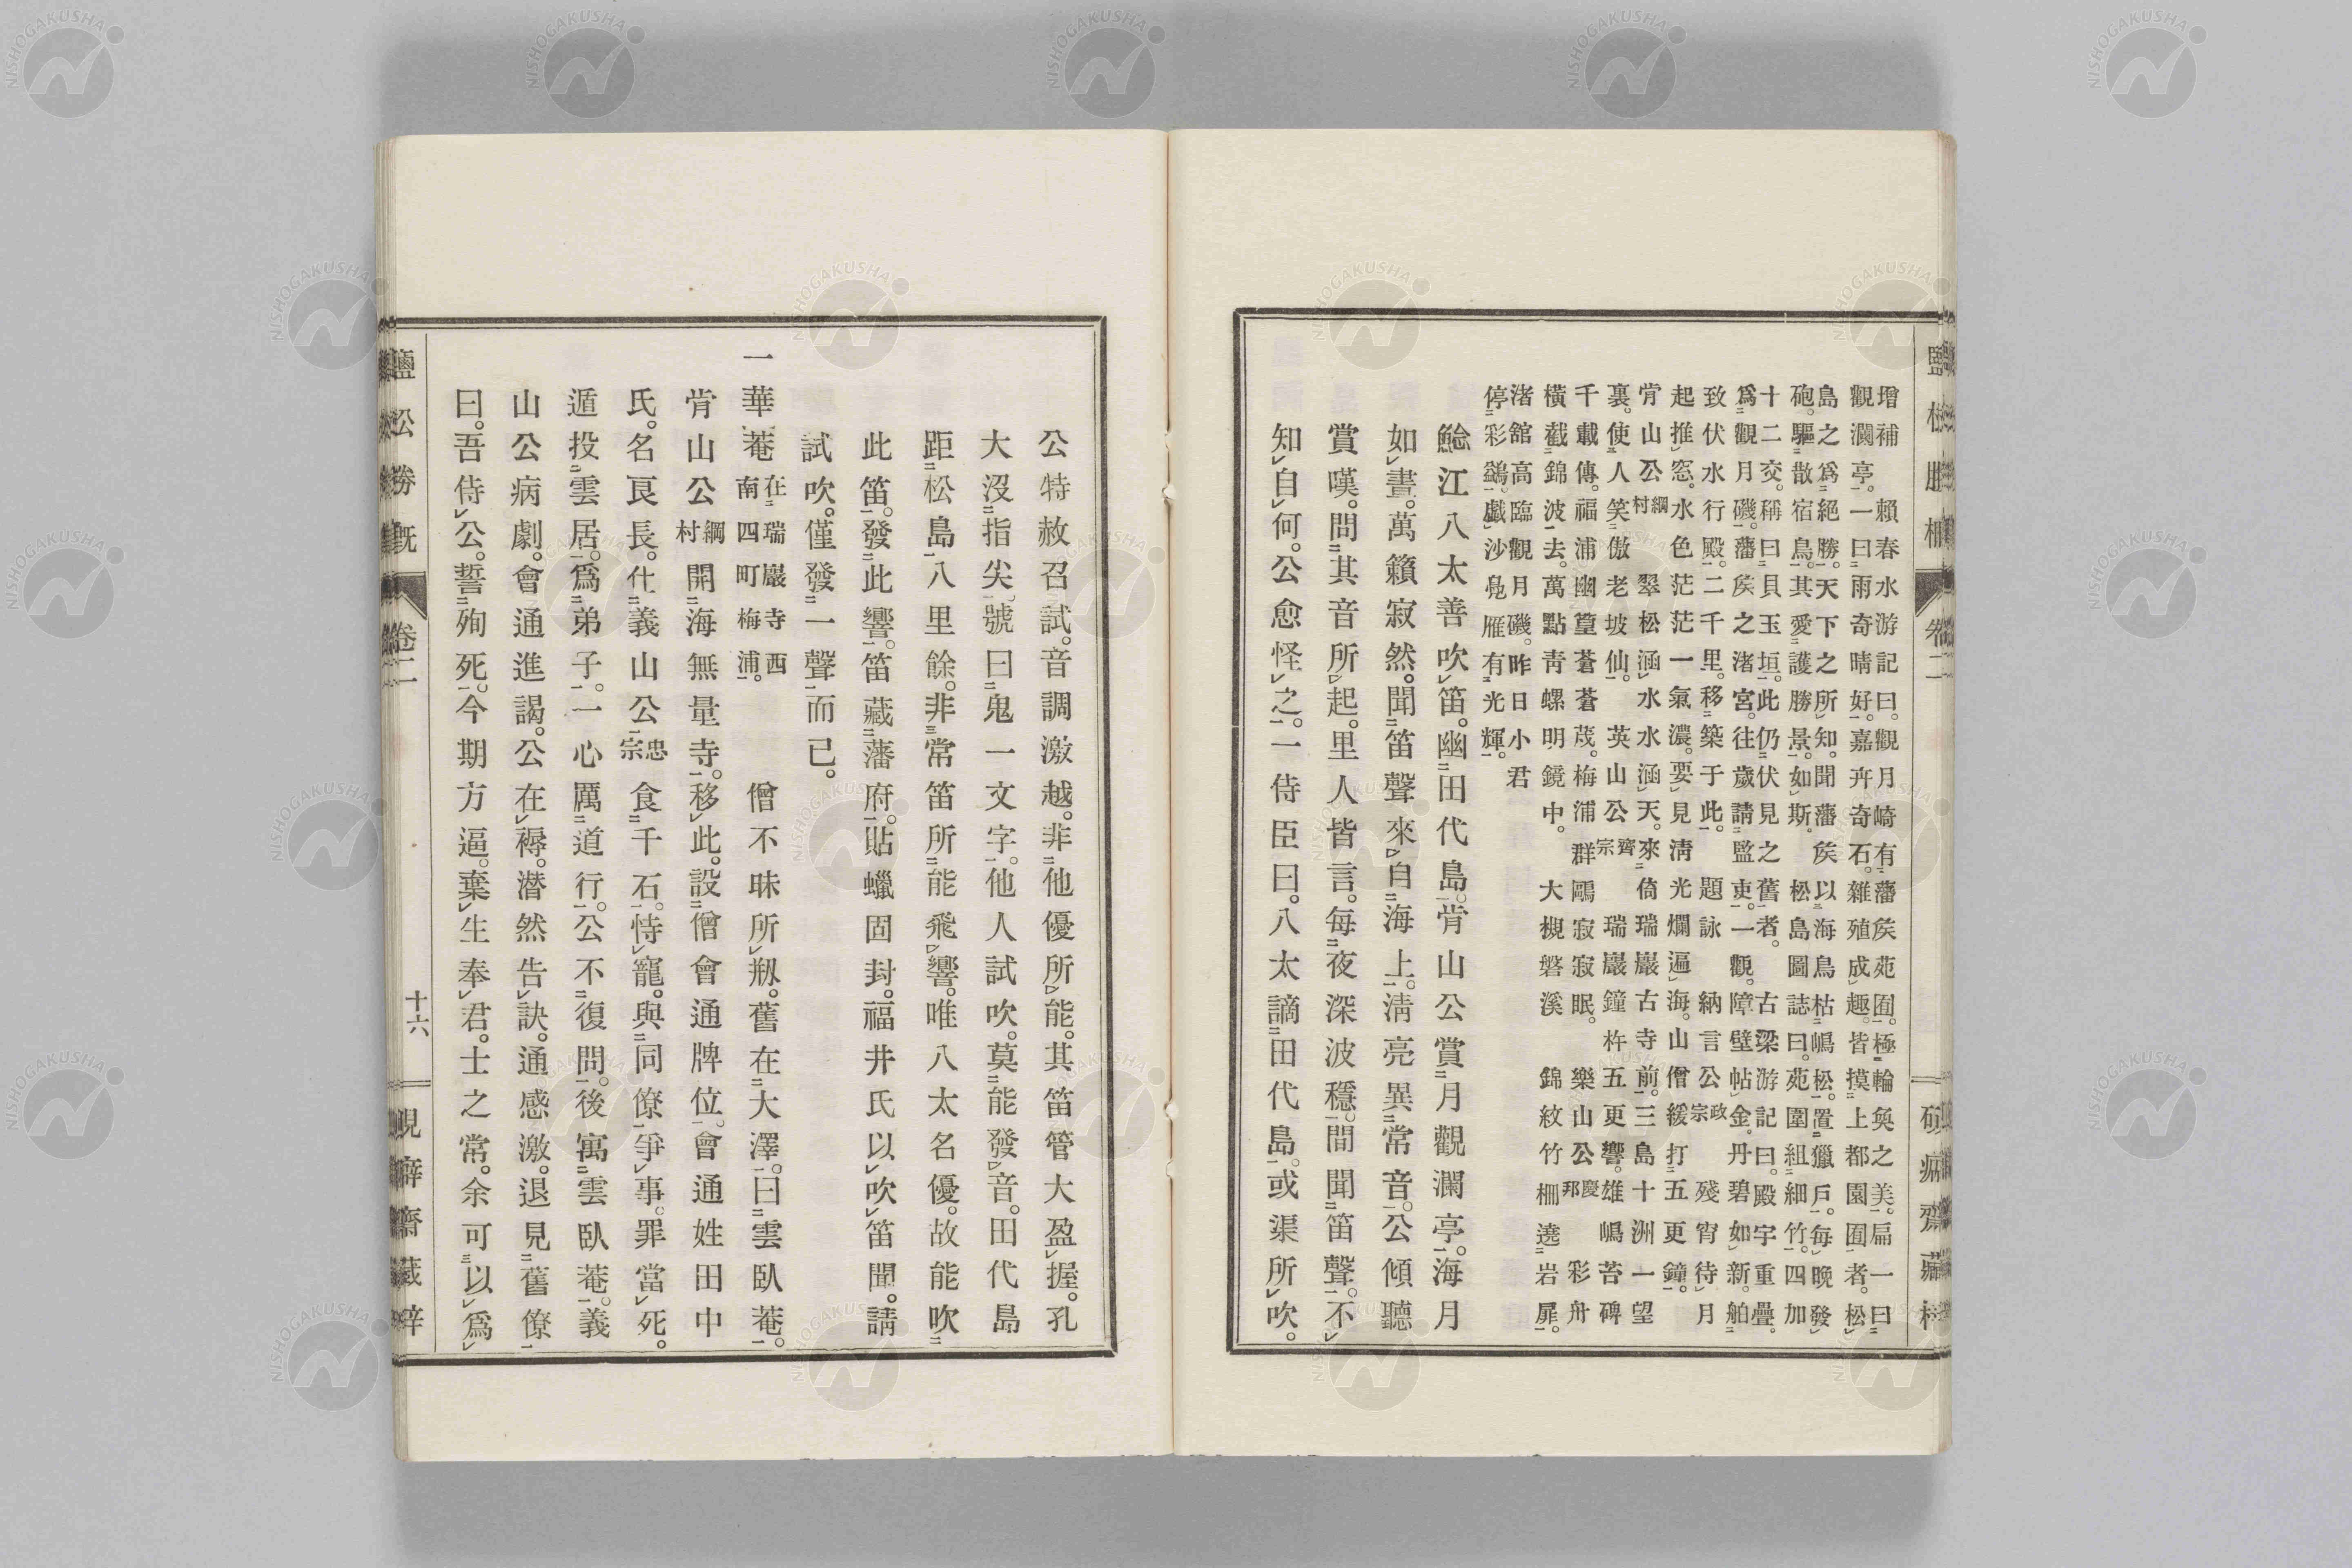 增補　賴春水游記曰。觀月崎有藩矦苑囿。極輪奐之美。扁一曰
觀瀾亭。一曰雨奇晴好。嘉卉奇石。雜殖成趣。皆摸上都園囿者。松
島之爲絕勝。天下之所知。聞藩矦以海鳥枯嶋松。置獵戶。每晚發
砲。驅散宿鳥。其愛護勝景。如斯。　松島圖誌曰。苑圍組細竹。四加
十二交。稱曰貝玉垣。此仍伏見之舊者。　古梁游記曰。殿宇重疊。
爲觀月磯。藩矦之渚宮。往歲請監吏。一觀。障壁帖金。丹碧如新。舶
致伏水行殿。二千里。移築于此。　題詠　納言公政宗　殘宵待月
起推窓。水色茫茫一氣濃。要見淸光爛遍海。山僧緩打五更鐘。
肯山公綱村　翠松涵水水涵天。來倚瑞巖古寺前。三島十洲一望
裏。使人笑傲老坡仙。　英山公齊宗　瑞巖鐘杵五更響。雄嶋苔碑
千載傳。福浦幽篁蒼蒼茂。梅浦群鷗寂寂眠。　樂山公慶邦　彩舟
橫截錦波去。萬點靑螺明鏡中。　大槻磐溪　錦紋竹柵遶岩扉。
渚舘高臨觀月磯。昨日小君
停彩鷁。戲沙鳧雁有光輝。
鯰江八太善吹笛。幽田代島。肯山公賞月觀瀾亭。海月
如晝。萬籟寂然。聞笛聲來自海上。淸亮異常音。公傾聽
賞嘆。問其音所起。里人皆言。每夜深波穩。間聞笛聲。不
知自何。公愈怪之。一侍臣曰。八太謫田代島。或渠所吹。
公特赦召試。音調激越。非他優所能。其笛管大盈握。孔
大沒指尖。號曰鬼一文字。他人試吹。莫能發音。田代島
距松島八里餘。非常笛所能飛響。唯八太名優。故能吹
此笛。發此響。笛藏藩府。貼蠟固封。福井氏以吹笛聞。請
試吹。僅發一聲而已。
一華菴在瑞巖寺西南四町梅浦。　僧不昧所剏。舊在大澤。曰雲臥菴。
肯山公綱村開海無量寺。移此。設僧會通牌位。會通姓田中
氏。名良長。仕義山公忠宗食千石。恃寵。與同僚爭事。罪當死。
遁投雲居。爲弟子。一心厲道行。公不復問。後寓雲臥菴。義
山公病劇。會通進謁。公在褥。潛然告訣。通感激。退見舊僚
曰。吾侍公。誓殉死。今期方逼。棄生奉君。士之常。余可以爲
鹽松勝概　卷二　十六　硯癖齋藏梓